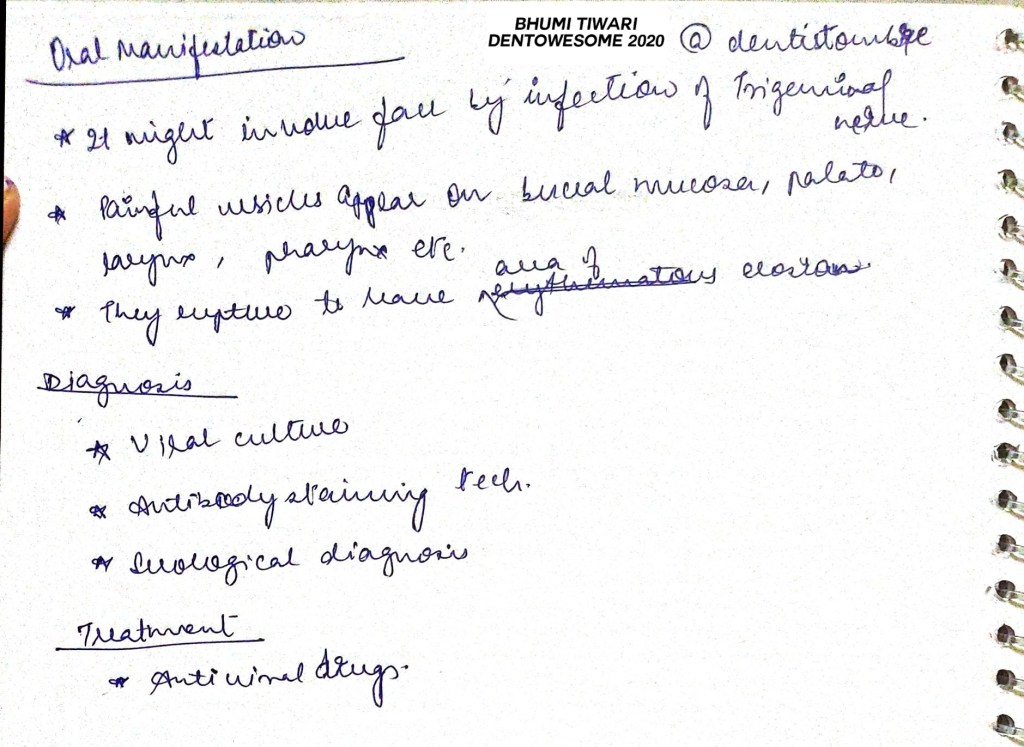 BHUMI TIWARI
DENTOWESOME 2020 @dentistombre
Oral Manifestation
* It might involve face by infection of Trigeminal
nerve.
* Painful vesicles appear on buccal mucosa, palate,
larynx, pharynx etc.
area of
* They rupture to leave erythematous erosion.
Diagnosis
* Viral culture
* Antibody staining tech.
* Serological diagnosis
Treatment
* Antiviral drugs.